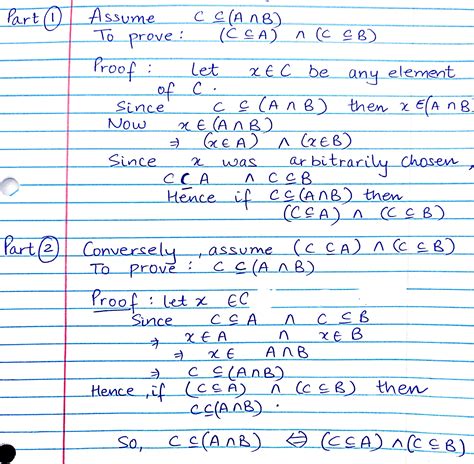 Part ① Assume C ⊆ (A ∩ B)
To prove : (C ⊆ A) ∧ (C ⊆ B)
Proof : Let x ∈ C be any element
of C .
Since C ⊆ (A ∩ B) then x ∈ (A ∩ B)
Now x ∈ (A ∩ B)
⇒ (x ∈ A) ∧ (x ∈ B)
Since x was arbitrarily chosen,
C ⊆ A ∧ C ⊆ B
Hence if C ⊆ (A ∩ B) then
(C ⊆ A) ∧ (C ⊆ B)
Part ② Conversely, assume (C ⊆ A) ∧ (C ⊆ B)
To prove : C ⊆ (A ∩ B)
Proof : let x ∈ C
Since C ⊆ A ∧ C ⊆ B
⇒ x ∈ A ∧ x ∈ B
⇒ x ∈ A ∩ B
⇒ C ⊆ (A ∩ B)
Hence, if (C ⊆ A) ∧ (C ⊆ B) then
C ⊆ (A ∩ B) .
So, C ⊆ (A ∩ B) ⇔ (C ⊆ A) ∧ (C ⊆ B)